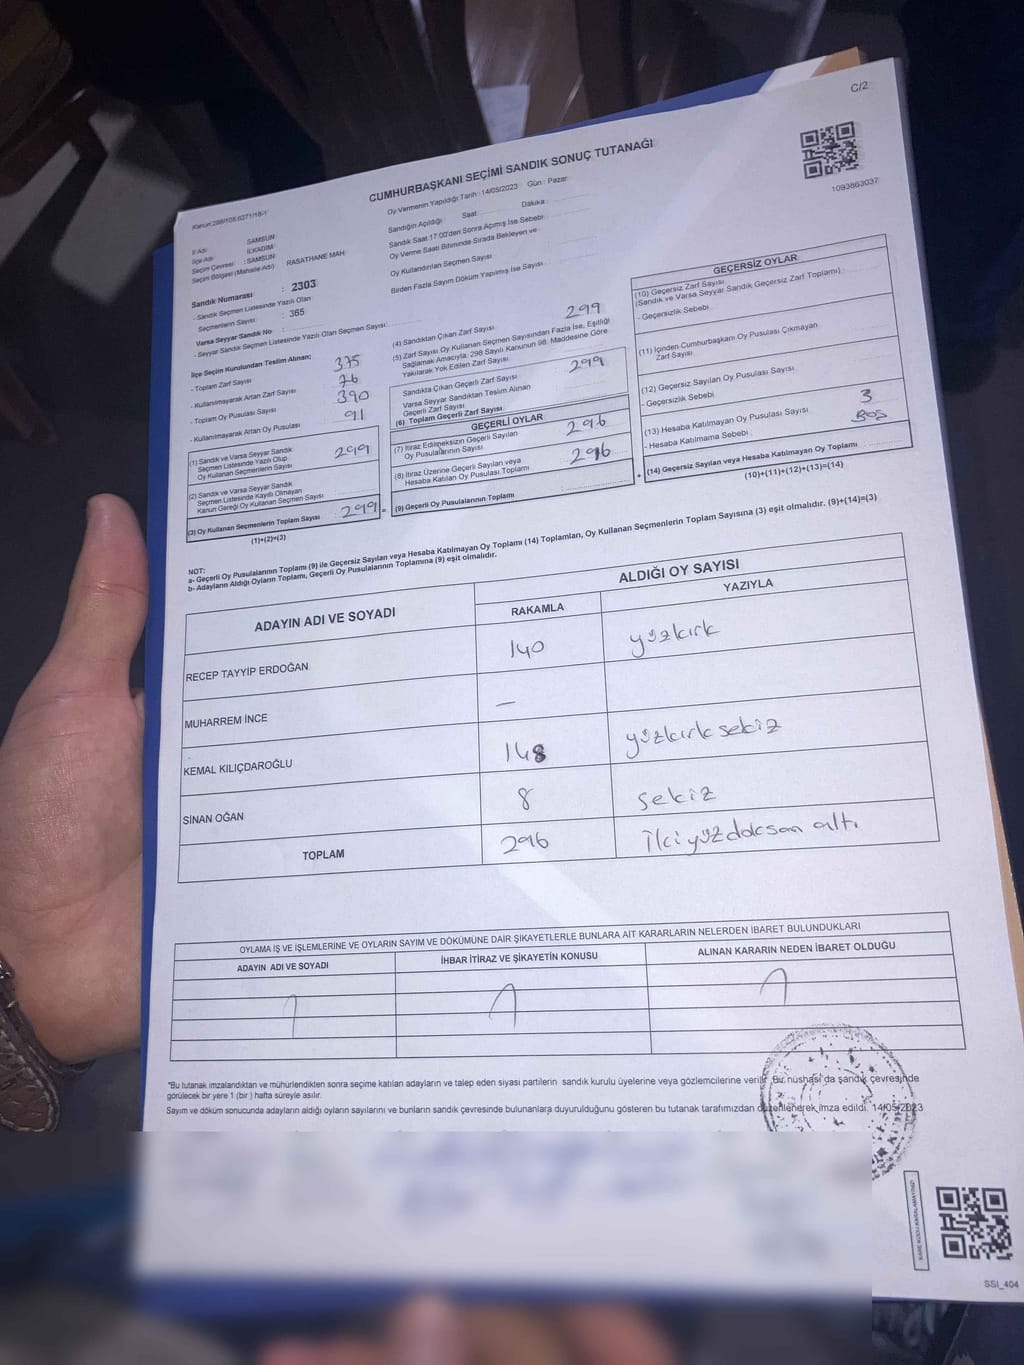 C/2
CUMHURBAŞKANI SEÇİMİ SANDIK SONUÇ TUTANAĞI
1093863037
Oy Vermenin Yapıldığı Tarih : 14/05/2023 Gün : Pazar
Sandığın Açıldığı Saat Dakika :
Sandık Saat 17:00'den Sonra Açılmış İse Sebebi
Oy Verme Saati Bitiminde Sırada Bekleyen ve
Oy Kullandırılan Seçmen Sayısı
Birden Fazla Sayım Döküm Yapılmış İse Sayısı
İl Adı : SAMSUN
İlçe Adı : İLKADIM
Seçim Çevresi : SAMSUN
Seçim Bölgesi (Mahalle Adı) : RASATHANE MAH.
Sandık Numarası : 2303
- Sandık Seçmen Listesinde Yazılı Olan
Seçmenlerin Sayısı : 365
Varsa Seyyar Sandık No :
- Seyyar Sandık Seçmen Listesinde Yazılı Olan Seçmen Sayısı :
İlçe Seçim Kurulundan Teslim Alınan;
- Toplam Zarf Sayısı 375
- Kullanılmayarak Artan Zarf Sayısı 76
- Toplam Oy Pusulası Sayısı 390
- Kullanılmayarak Artan Oy Pusulası 91
(1) Sandık ve Varsa Seyyar Sandık
Seçmen Listesinde Yazılı Olup
Oy Kullanan Seçmenlerin Sayısı 299
(2) Sandık ve Varsa Seyyar Sandık
Seçmen Listesinde Kayıtlı Olmayan
Kanun Gereği Oy Kullanan Seçmen Sayısı
(3) Oy Kullanan Seçmenlerin Toplam Sayısı : 299
(1)+(2)=(3)
(4) Sandıktan Çıkan Zarf Sayısı 299
(5) Zarf Sayısı Oy Kullanan Seçmen Sayısından Fazla İse, Eşitliği
Sağlamak Amacıyla, 298 Sayılı Kanunun 98. Maddesine Göre
Yakılarak Yok Edilen Zarf Sayısı
Sandıkta Çıkan Geçerli Zarf Sayısı 299
Varsa Seyyar Sandıktan Teslim Alınan
Geçerli Zarf Sayısı
(6) Toplam Geçerli Zarf Sayısı
GEÇERLİ OYLAR
(7) İtiraz Edilmeksizin Geçerli Sayılan
Oy Pusulalarının Sayısı 296
(8) İtiraz Üzerine Geçerli Sayılan veya
Hesaba Katılan Oy Pusulası Toplamı 296
(9) Geçerli Oy Pusulalarının Toplamı
GEÇERSİZ OYLAR
(10) Geçersiz Zarf Sayısı
(Sandık ve Varsa Seyyar Sandık Geçersiz Zarf Toplamı) :
- Geçersizlik Sebebi
(11) İçinden Cumhurbaşkanı Oy Pusulası Çıkmayan
Zarf Sayısı
(12) Geçersiz Sayılan Oy Pusulası Sayısı
- Geçersizlik Sebebi
(13) Hesaba Katılmayan Oy Pusulası Sayısı 3
- Hesaba Katılmama Sebebi : Boş
(14) Geçersiz Sayılan veya Hesaba Katılmayan Oy Toplamı
(10)+(11)+(12)+(13)=(14)
NOT:
a- Geçerli Oy Pusulalarının Toplamı (9) ile Geçersiz Sayılan veya Hesaba Katılmayan Oy Toplamı (14) Toplamları, Oy Kullanan Seçmenlerin Toplam Sayısına (3) eşit olmalıdır. (9)+(14)=(3)
b- Adayların Aldığı Oyların Toplamı, Geçerli Oy Pusulalarının Toplamına (9) eşit olmalıdır.
ADAYIN ADI VE SOYADI ALDIĞI OY SAYISI
RAKAMLA YAZIYLA
RECEP TAYYİP ERDOĞAN 140 yüzkırk
MUHARREM İNCE —
KEMAL KILIÇDAROĞLU 148 yüzkırk sekiz
SİNAN OĞAN 8 sekiz
TOPLAM 296 ikiyüzdoksan altı
OYLAMA İŞ VE İŞLEMLERİNE VE OYLARIN SAYIM VE DÖKÜMÜNE DAİR ŞİKAYETLERLE BUNLARA AİT KARARLARIN NELERDEN İBARET BULUNDUKLARI
ADAYIN ADI VE SOYADI İHBAR İTİRAZ VE ŞİKAYETİN KONUSU ALINAN KARARIN NEDEN İBARET OLDUĞU
*Bu tutanak imzalandıktan ve mühürlendikten sonra seçime katılan adayların ve talep eden siyasi partilerin sandık kurulu üyelerine veya gözlemcilerine verilir. Bir nüshası da sandık çevresinde
görülecek bir yere 1 (bir) hafta süreyle asılır.
Sayım ve döküm sonucunda adayların aldığı oyların sayılarını ve bunların sandık çevresinde bulunanlara duyurulduğunu gösteren bu tutanak tarafımızdan düzenlenerek imza edildi. 14/05/2023
KARE KODU KARALAMAYINIZ!
SSI_404